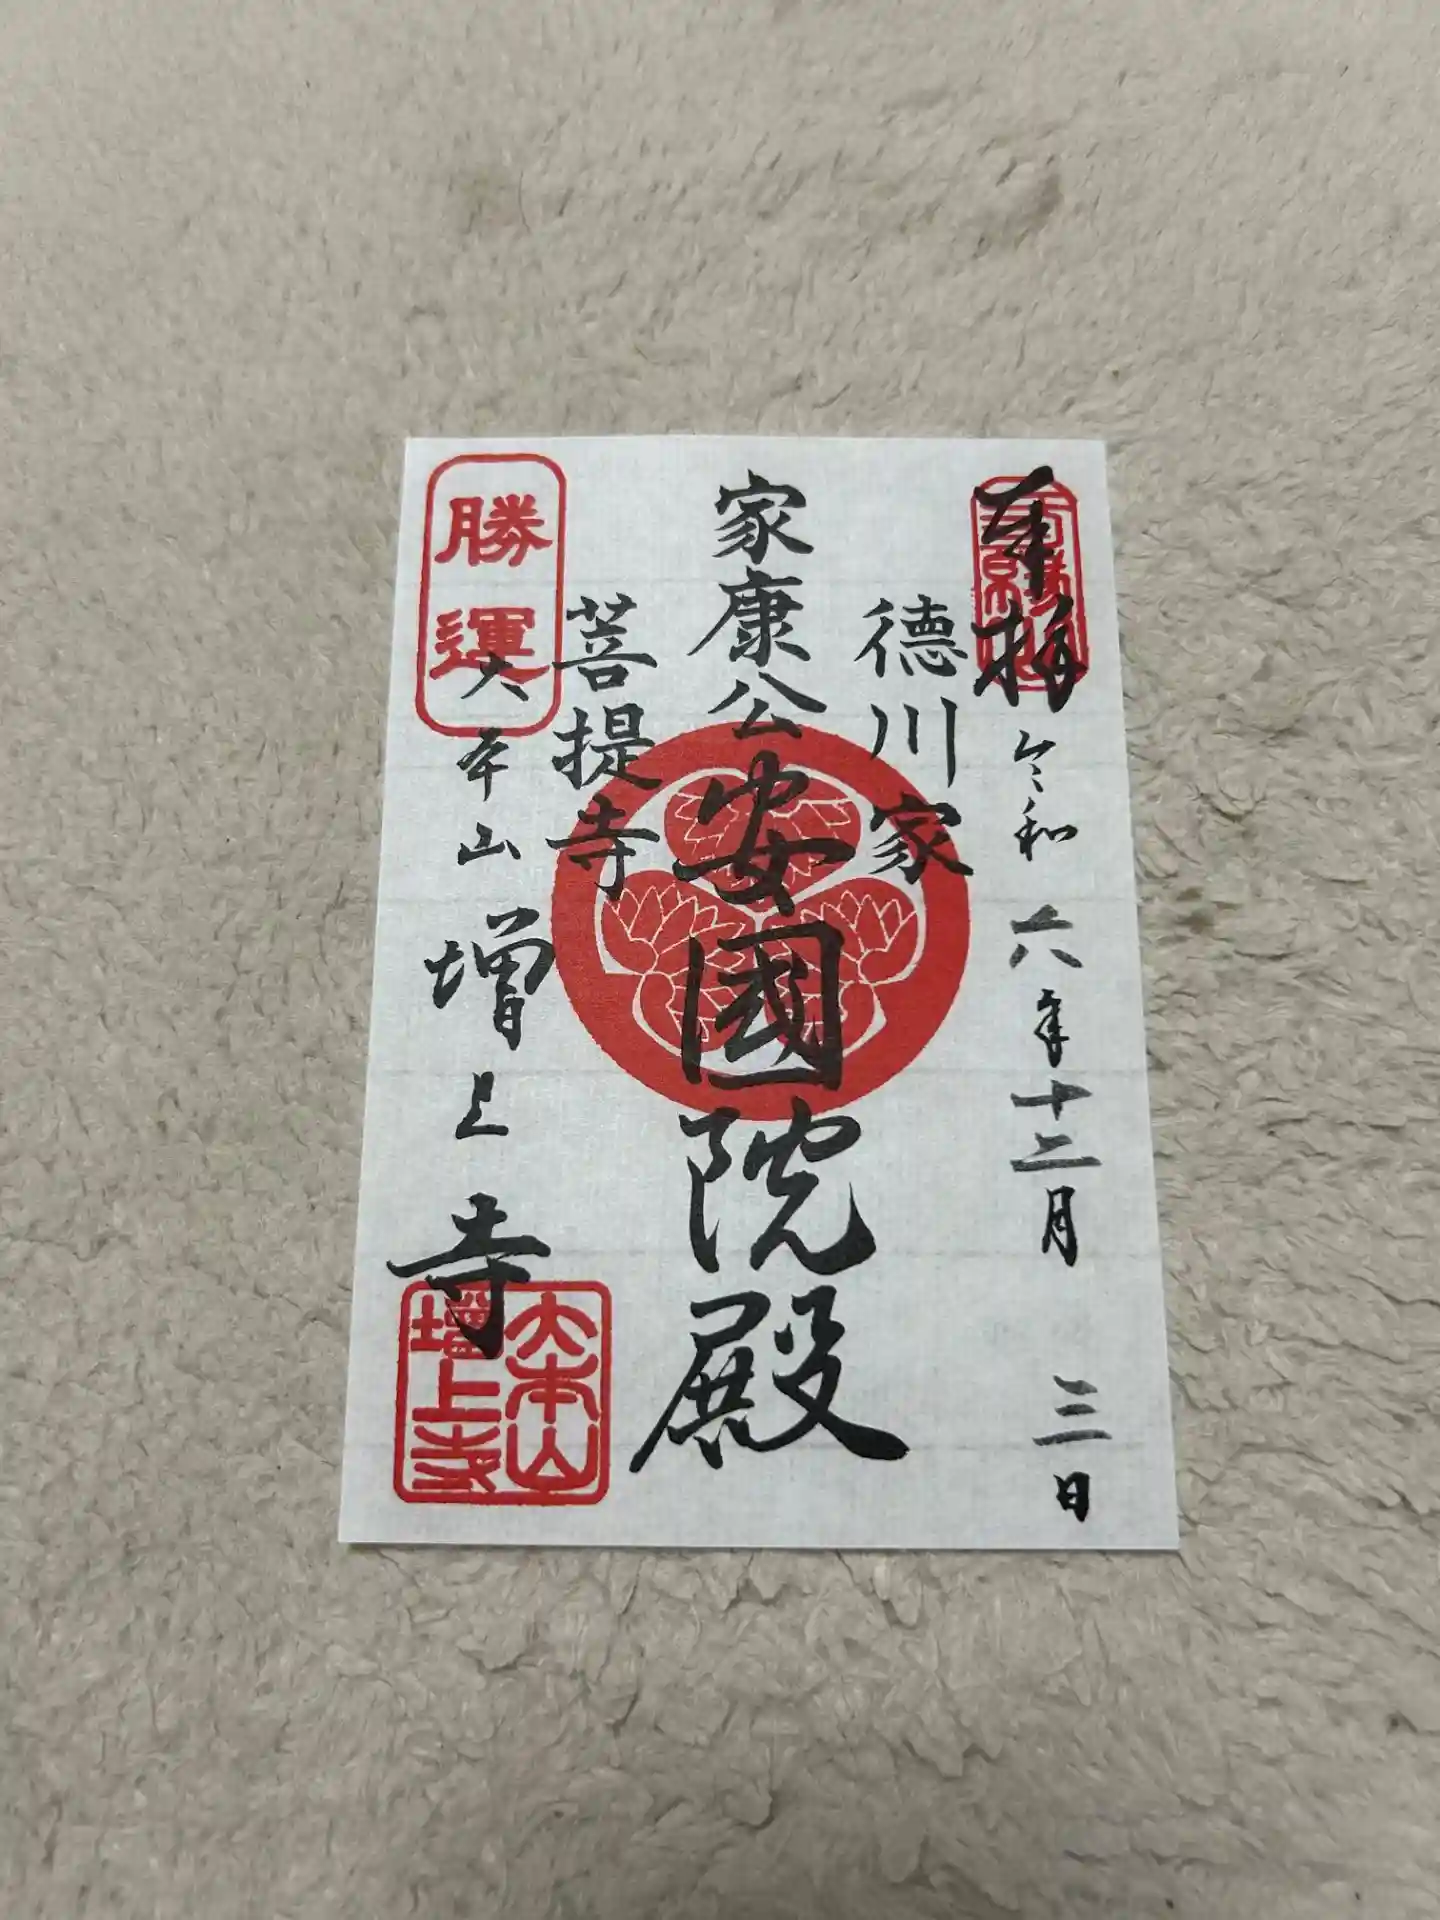 奉拝
令和六年十二月三日
徳川家
家康公
安國院殿
菩提寺
勝運
大本山増上寺
大本山
增上寺